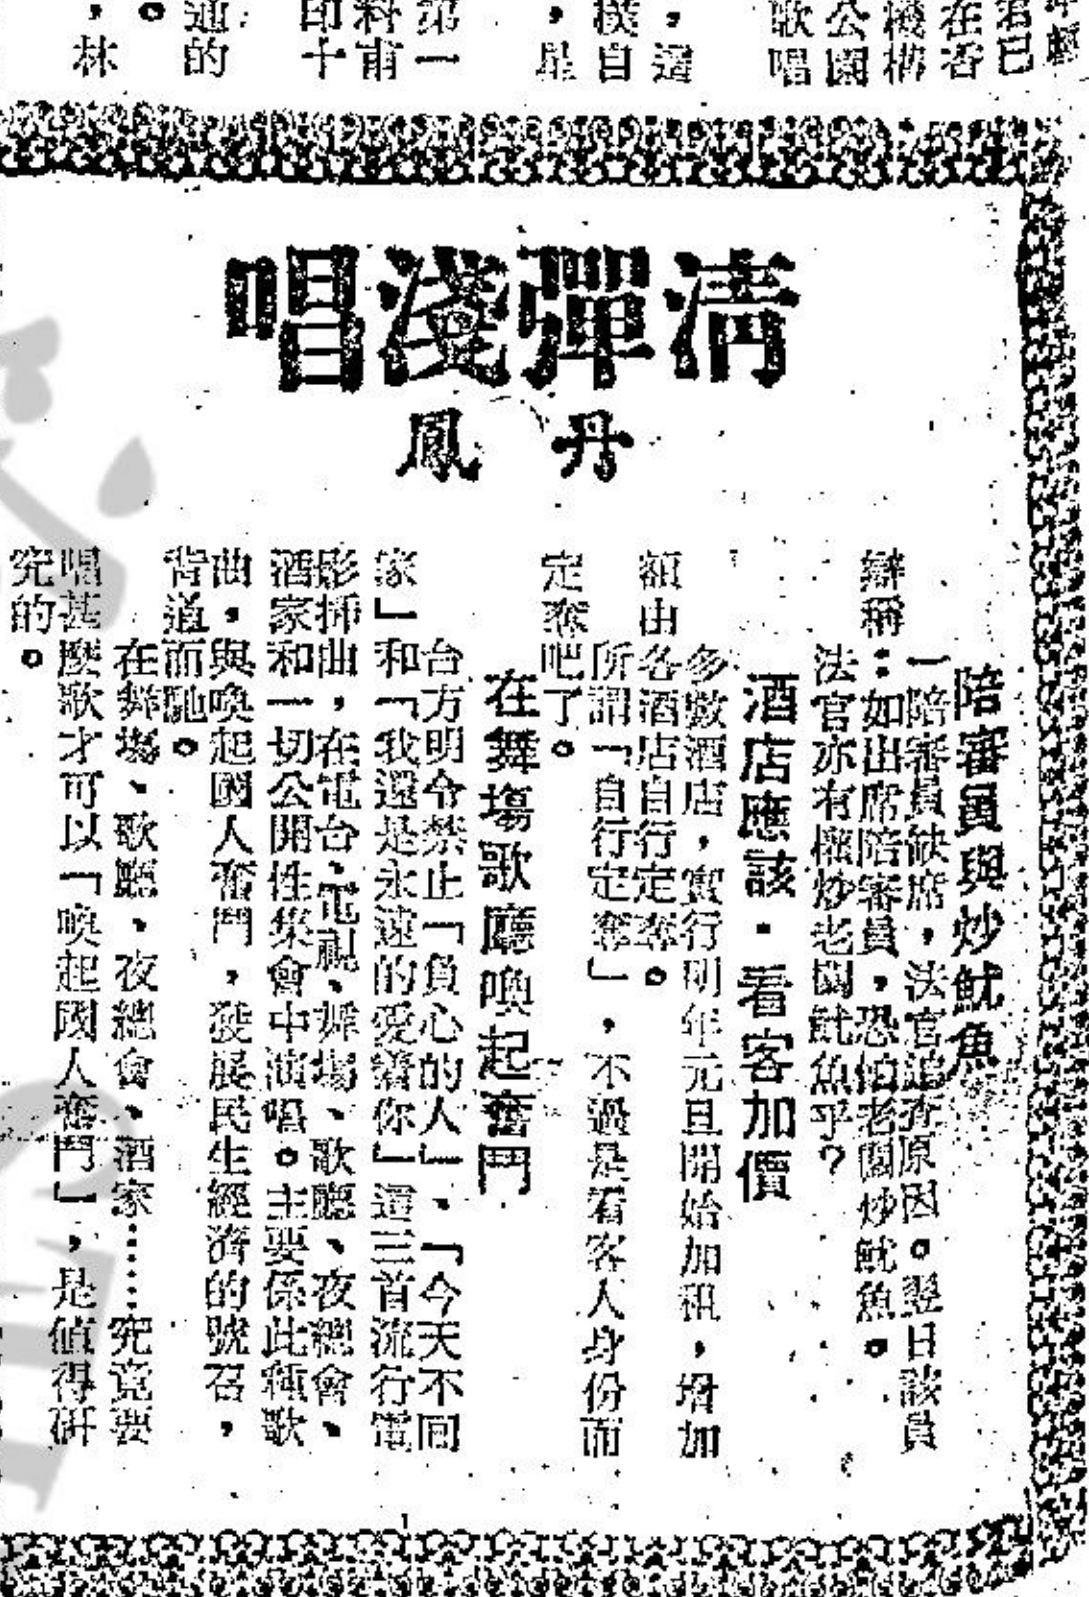 清彈淺唱
丹鳳
陪審員與炒魷魚
一陪審員缺席，法官追查原因。翌日該員
辯稱：如出席陪審員，恐怕老闆炒魷魚。
法官亦有權炒老闆魷魚乎？
酒店應該·看客加價
多數酒店，實行明年元旦開始加租，增加
額由各酒店自行定奪。
所謂「自行定奪」，不過是看客人身份而
定奪吧了。
在舞場歌廳喚起奮鬥
台方明令禁止「負心的人」、「今天不回
家」和「我還是永遠的愛着你」這三首流行電
影揷曲，在電台、電視、舞場、歌廳、夜總會、
酒家和一切公開性集會中演唱。主要係此種歌
曲，與喚起國人奮鬥，發展民生經濟的號召，
背道而馳。
在舞場、歌廳、夜總會、酒家……究竟要
唱甚麼歌才可以「喚起國人奮鬥」，是值得研
究的。